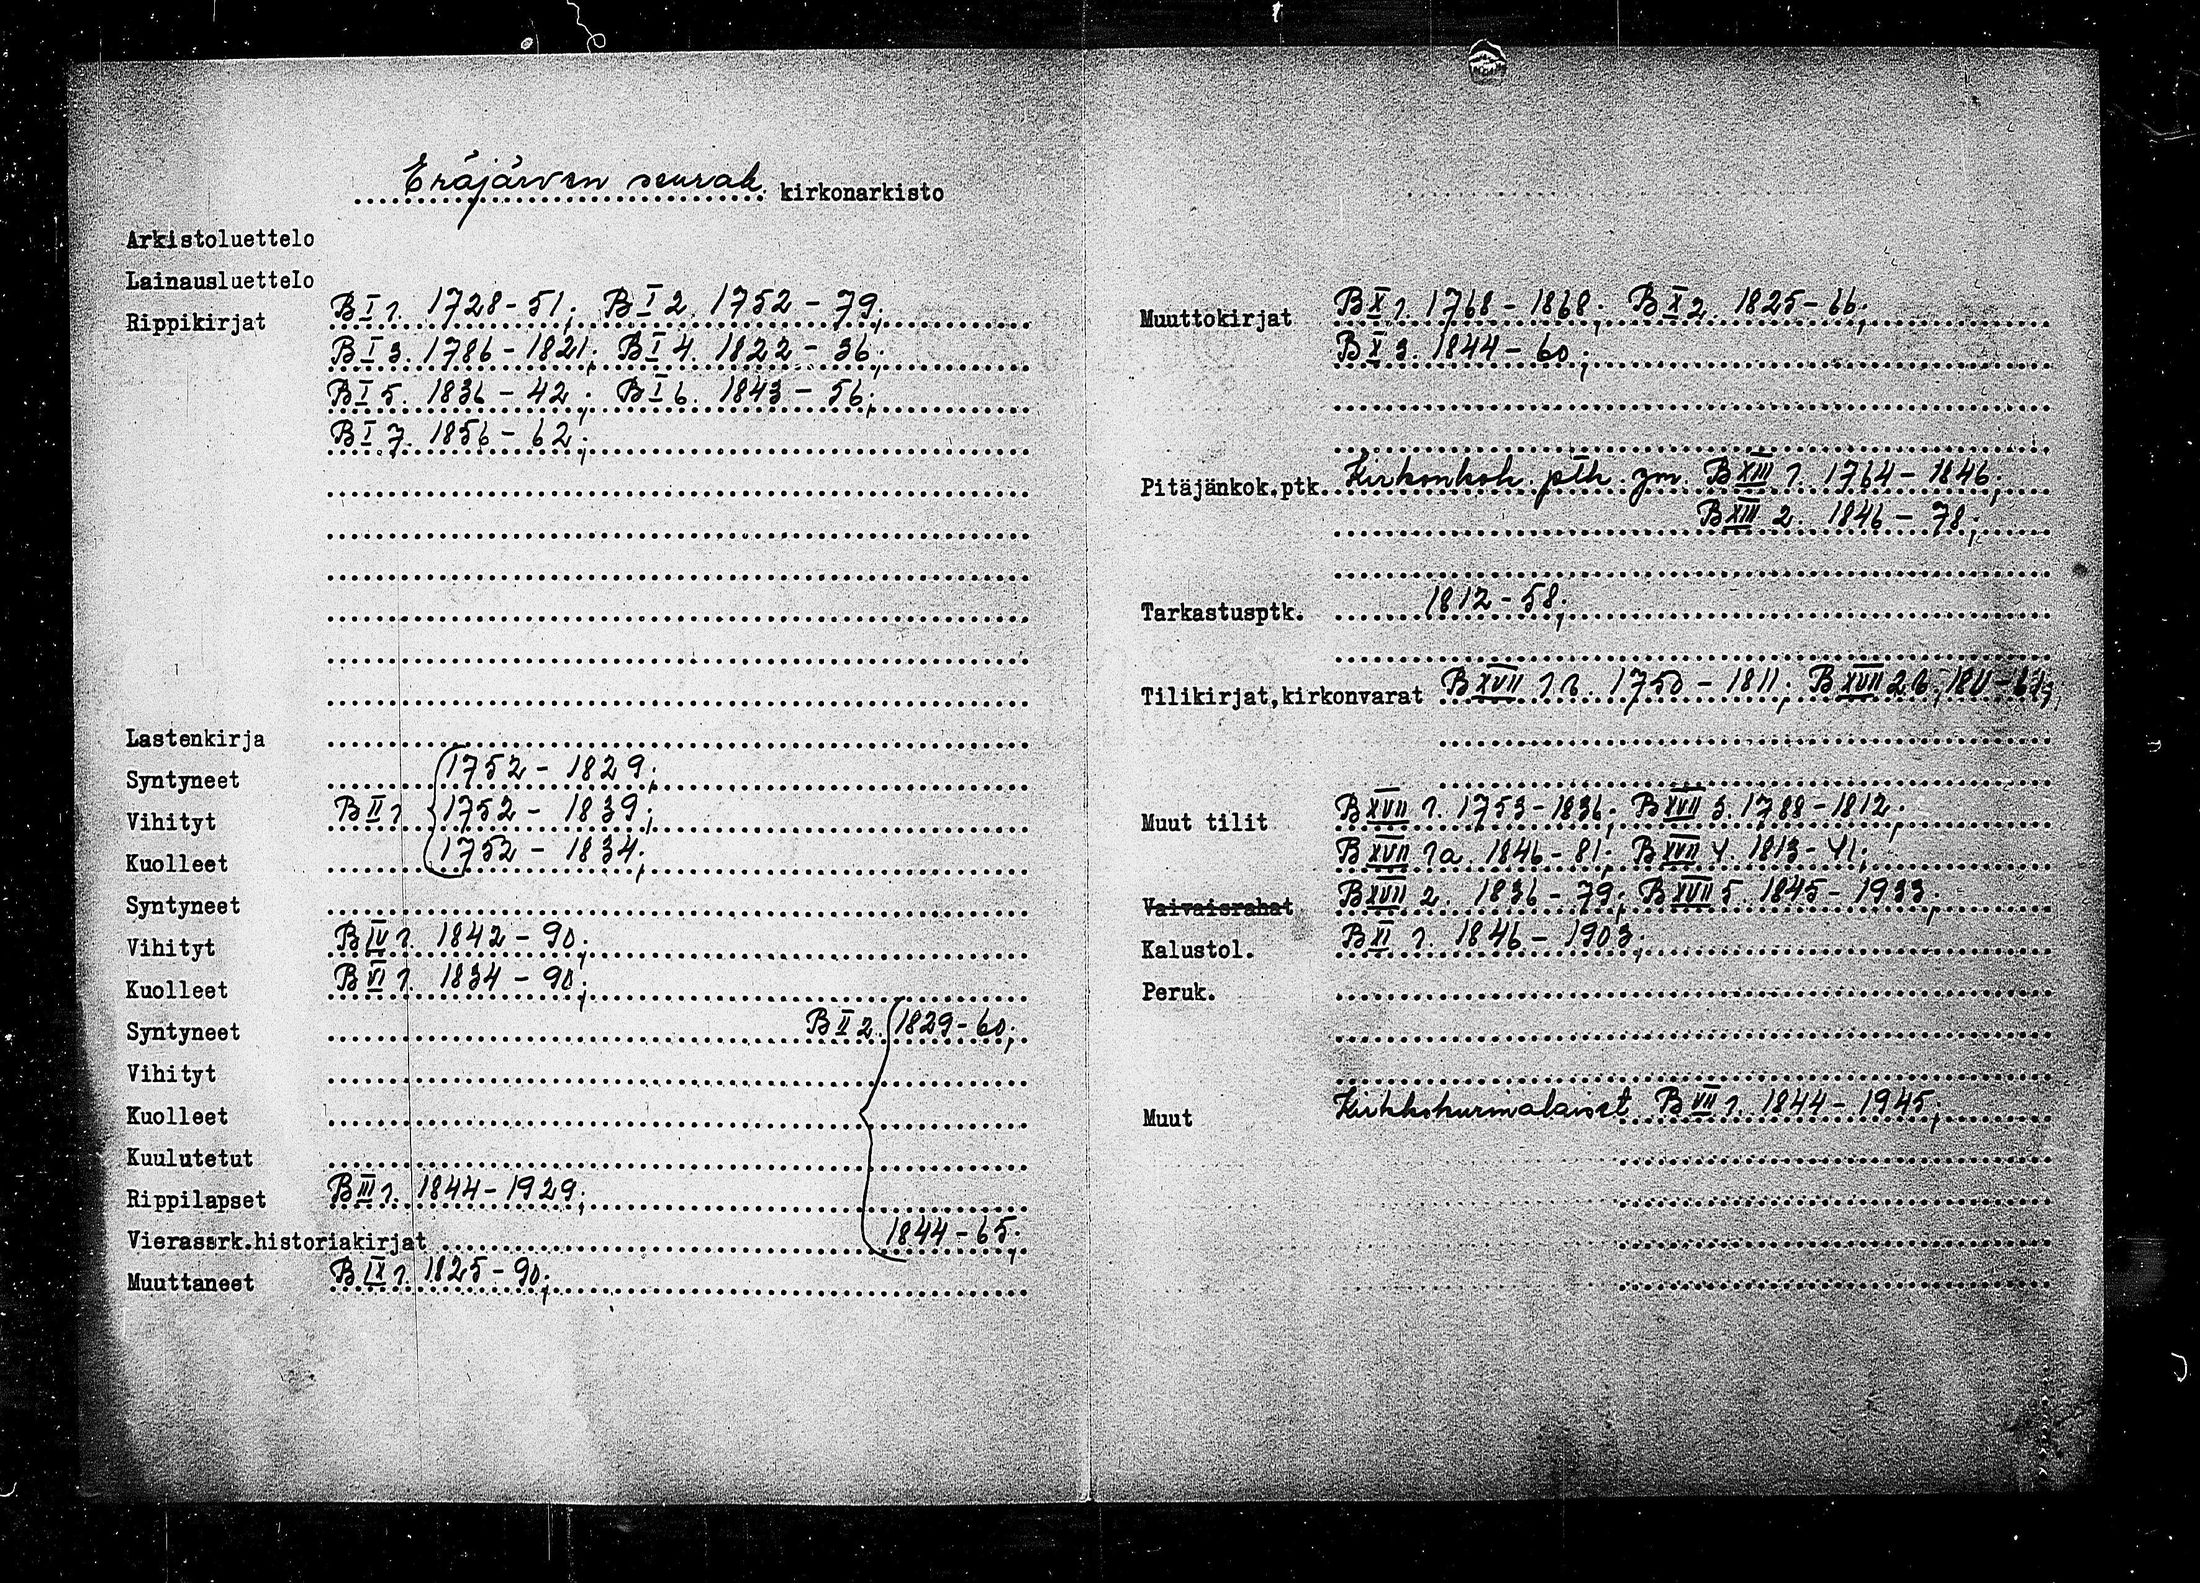 Eräjärven seurak. kirkonarkisto
Arkistoluettelo
Lainausluettelo
Rippikirjat B I 1. 1728-51; B I 2. 1752-79;
B I 3. 1786-1821; B I 4. 1822-36;
B I 5. 1836-42; B I 6. 1843-56;
B I 7. 1856-62;
Lastenkirja
Syntyneet 1752-1829;
Vihityt B II 1 1752-1839;
Kuolleet 1752-1834;
Syntyneet
Vihityt B IV 1. 1842-90;
Kuolleet B VI 1. 1834-90;
Syntyneet B II 2. 1829-60;
Vihityt
Kuolleet
Kuulutetut
Rippilapset B III 1. 1844-1929;
Vierassrk.historiakirjat 1844-65;
Muuttaneet B IX 1. 1825-90;
Muuttokirjat B X 1. 1768-1868; B X 2. 1825-66;
B X 3. 1844-60;
Pitäjänkok.ptk. Kirkonkok. ptk. ym. B XIII 1. 1764-1846;
B XIII 2. 1846-78;
Tarkastusptk. 1812-58;
Tilikirjat,kirkonvarat B XVII 1 1750-1811; B XVII 2
Muut tilit B XVII 1. 1753-1836; B XVII 3. 1788-1812;
B XVII 1a. 1846-81; B XVII 4. 1813-41;
Vaivaisrahat B XVII 2. 1836-79; B XVII 5. 1845-1933;
Kalustol. B XI 1. 1846-1903;
Peruk.
Muut Kirkkokurinalaiset B VII 1. 1844-1945;